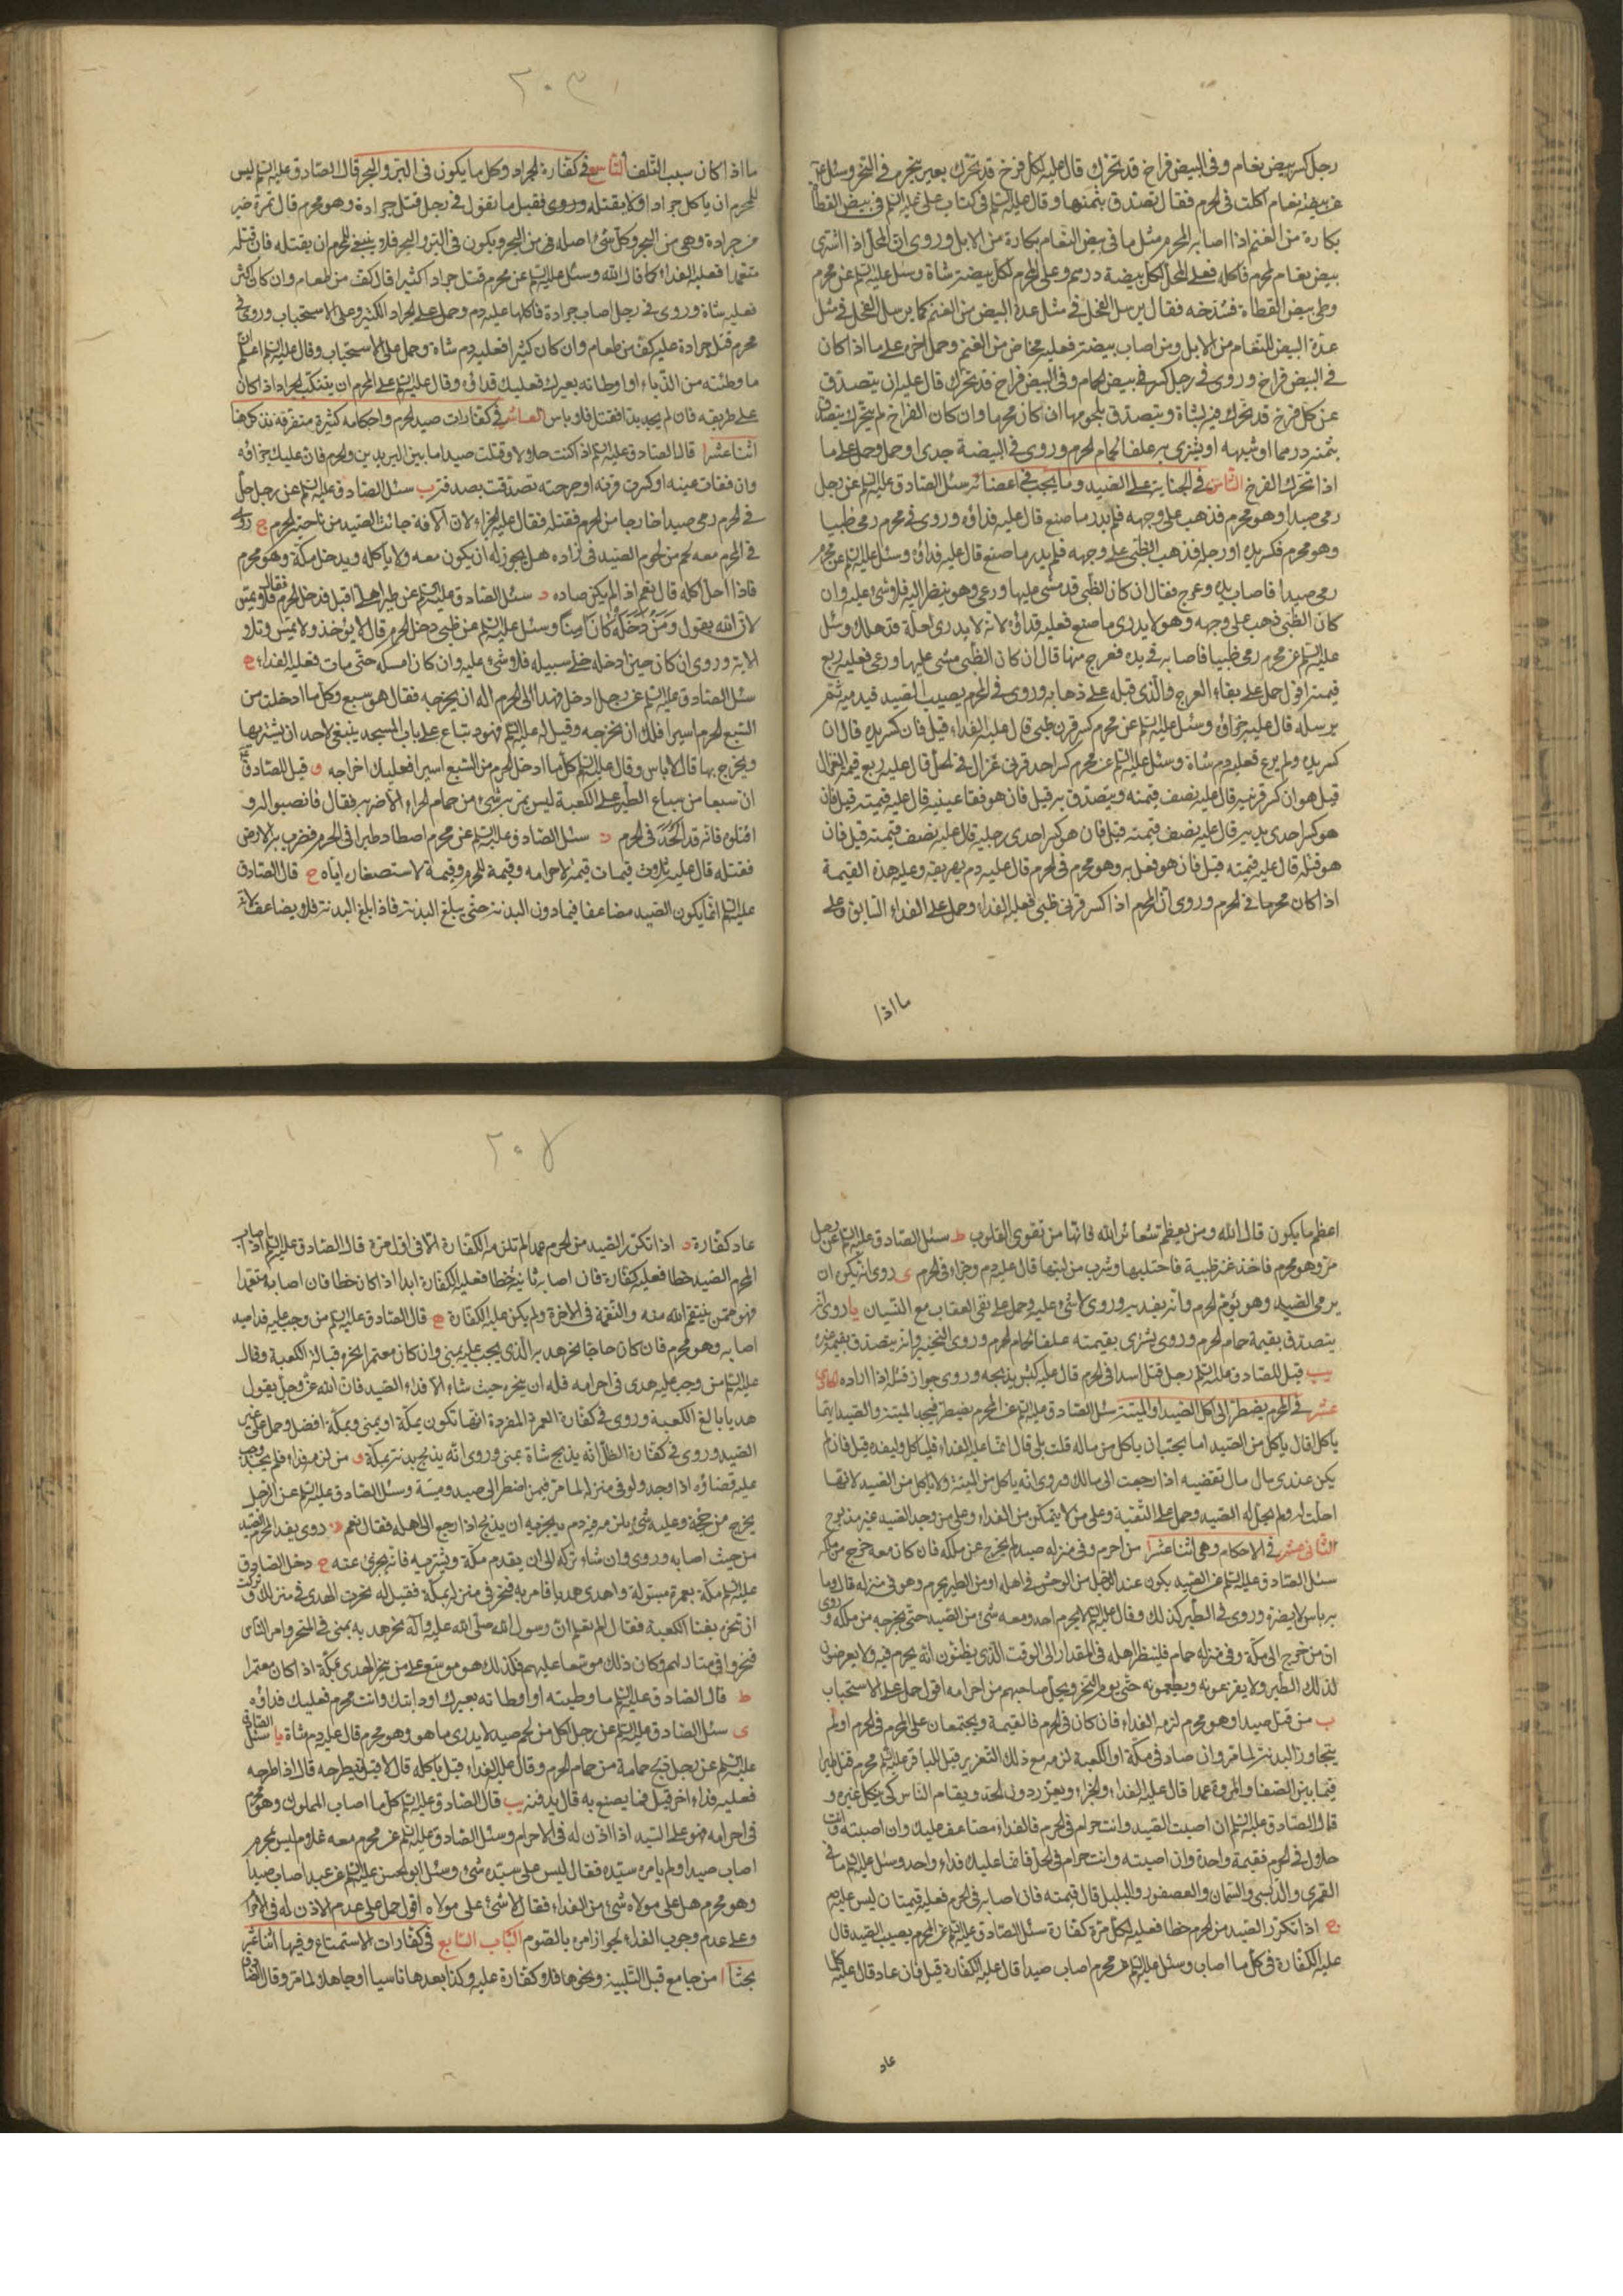 رجل كسر بيض نعام وفى البيض فراخ قد تحرك قال عليه لكل فرخ قد تحرك بعير ينحره فى المنحر وسئل عن
بيضة نعام اكلت فى الحرم فقال تصدق بثمنها وقال عليه السلم فى كتاب على عليه السلم فى بيض القطاة
بكارة من الغنم اذا اصابه المحرم مثل ما فى بيض النعام بكارة من الابل وروى ان المحل اذا اشترى
بيض نعام لمحرم فاكله فعلى المحل لكل بيضة درهم وعلى المحرم لكل بيضة شاة وسئل عليه السلم عن محرم
وطى بيض القطاة فشدخه فقال يرسل الفحل فى مثل عدة البيض من الغنم كما يرسل الفحل فى مثل
عدة البيض للنعام من الابل ومن اصاب بيضة فعليه مخاض من الغنم وحمل اخره على ما اذا كان
فى البيض فراخ وروى فى رجل كسر بيض الحمام وفى البيض فراخ قد تحرك قال عليه ان يتصدق
عن كل فرخ قد تحرك فيه بشاة ويتصدق بلحومها ان كان محرما وان كان الفراخ لم يتحرك يتصدق
بثمنه درهما او شبهه او يشترى به علفا لحمام الحرم وروى فى البيضة جدى او حمل وحمل على ما
اذا تحرك الفرخ الثامن فى الجناية على الصيد وما يجب فى اعضائه سئل الصادق عليه السلم عن رجل
رمى صيدا وهو محرم فذهب على وجهه فلم يدر ما صنع قال عليه فداؤه وروى فى محرم رمى ظبيا
وهو محرم فكسر يده او رجله فذهب الظبى على وجهه فلم يدر ما صنع قال عليه فداؤه وسئل عليه السلم عن محرم
رمى صيدا فاصاب يده وعرج فقال ان كان الظبى قد مشى عليها ورعى وهو ينظر اليه فلا شئ عليه وان
كان الظبى ذهب على وجهه وهو لا يدرى ما صنع فعليه فداؤه لانه لا يدرى لعله قد هلك وسئل
عليه السلم عن محرم رمى ظبيا فاصابه فى يده فعرج منها قال ان كان الظبى مشى عليها ورعى فعليه ربع
قيمته اقول حمل على بقاء العرج والذى قبله على ذهابه وروى فى المحرم يصيب الصيد فيدميه ثم
يرسله قال عليه جزاؤه وسئل عليه السلم عن محرم كسر قرن ظبى قال عليه الفداء قيل فان كسر يده قال ان
كسر يده ولم يرع فعليه دم شاة وسئل عليه السلم عن محرم كسر احد قرنى غزال فى الحل قال عليه ربع قيمة الغزال
قيل هو ان كسر قرنيه قال عليه نصف قيمته ويتصدق به قيل فان هو فقأ عينيه قال عليه قيمته قيل فان
هو كسر احدى يديه قال عليه نصف قيمته قيل فان هو كسر احدى رجليه قال عليه نصف قيمته قيل فان
هو قتله قال عليه قيمته قيل فان هو فعل به وهو محرم فى الحرم قال عليه دم يهريقه وعليه هذه القيمة
اذا كان محرما فى الحرم وروى ان المحرم اذا كسر قرنى ظبى فعليه الفداء وحمل على الفداء السابق وعلى
ما اذا
٢٠٣
ما اذا كان سبب التلف التاسع فى كفارة الجراد وكل ما يكون فى البر والبحر قال الصادق عليه السلم ليس
للمحرم ان ياكل جرادا ولا يقتله وروى فقيل ما تقول فى رجل قتل جرادة وهو محرم قال تمرة خير
من جرادة وهى من البحر وكل شئ اصله من البحر ويكون فى البر والبحر فلا ينبغى للمحرم ان يقتله فان قتله
متعمدا فعليه الفداء كما قال الله وسئل عليه السلم عن محرم قتل جرادا كثيرا قال كف من طعام وان كان اكثر
فعليه شاة وروى فى رجل اصاب جرادة فاكلها عليه دم وحمل على الجراد الكثير وعلى الاستحباب وروى فى
محرم قتل جرادة عليه كف من طعام وان كان كثيرا فعليه دم شاة وحمل على الاستحباب وقال عليه السلم اعلم ان
ما وطئته من الدباء او اوطاته بعيرك فعليك فداؤه وقال عليه السلم على المحرم ان يتنكب الجراد اذا كان
على طريقه فان لم يجد بدا فقتل فلا باس العاشر فى كفارات صيد الحرم واحكامه كثيرة متفرقة نذكر هنا
اثنا عشر ا قال الصادق عليه السلم اذا كنت حلالا وقتلت صيدا ما بين البريدين والحرم فان عليك جزاؤه
وان فقات عينه او كسرت قرنه او جرحته تصدقت بصدقة ب سئل الصادق عليه السلم عن رجل حل
فى الحرم رمى صيدا خارجا من الحرم فقتله فقال عليه الجزاء لان الآفة جائت الصيد من ناحية الحرم ج روى
فى المحرم معه لحم من لحوم الصيد فى زاده هل يجوز له ان يكون معه ولا ياكله ويدخل مكة وهو محرم
فاذا احل اكله قال نعم اذا لم يكن صاده د سئل الصادق عليه السلم عن طير اهلى اقبل فدخل الحرم فقال لا يمس
لان الله يقول ومن دخله كان آمنا وسئل عليه السلم عن ظبى دخل الحرم قال لا يؤخذ ولا يمس وتلا
الاية وروى ان كان حين ادخله خلى سبيله فلا شئ عليه وان كان امسكه حتى مات فعليه الفداء ه
سئل الصادق عليه السلم عن رجل ادخل فهدا الى الحرم اله ان يخرجه فقال هو سبع وكل ما ادخلت من
السبع الحرم اسيرا فلك ان تخرجه وقيل له عليه السلم فهود تباع على باب المسجد ينبغى لاحد ان يشتريها
ويخرج بها قال لا باس وقال عليه السلم كل ما ادخل الحرم من السبع اسيرا فعليك اخراجه و قيل للصادق
ان سبعا من سباع الطير على الكعبة ليس يمر به شئ من حمام الحرم الا ضربه فقال فانصبوا له و
اقتلوه فانه قد الحد فى الحرم ز سئل الصادق عليه السلم عن محرم اصطاد طيرا فى الحرم فضرب به الارض
فقتله قال عليه ثلاث قيمات قيمة لاحرامه وقيمة للحرم وقيمة لاستصغاره اياه ح قال الصادق
عليه السلم انما يكون الصيد مضاعفا فيما دون البدنة حتى يبلغ البدنة فاذا بلغ البدنة فلا يضاعف لانه
اعظم ما يكون قال الله ومن يعظم شعائر الله فانها من تقوى القلوب ط سئل الصادق عليه السلم عن رجل
مر وهو محرم فاخذ عنز ظبية فاحتلبها وشرب من لبنها قال عليه دم وجزاء فى الحرم ى روى انه يكره ان
يرمى الصيد وهو يؤم الحرم وانه يفديه وروى لا شئ عليه وحمل على نفى العقاب مع النسيان يا روى انه
يتصدق بقيمة حمام الحرم وروى يشترى بقيمته علفا لحمام الحرم وروى التخيير وانه يتصدق بقيمة غيره
يب قيل للصادق عليه السلم رجل قتل اسدا فى الحرم قال عليه كبش يذبحه وروى جواز قتله اذا اراده الحادى
عشر فى المحرم يضطر الى اكل الصيد او الميتة سئل الصادق عليه السلم عن المحرم يضطر فيجد الميتة والصيد ايهما
ياكل قال ياكل من الصيد اما يحب ان ياكل من ماله قلت بلى قال انما عليه الفداء فلياكل وليفده قيل فان لم
يكن عندى مال قال تقضيه اذا رجعت الى مالك وروى انه ياكل من الميتة ولا ياكل من الصيد لانها
احلت له ولم يحل له الصيد وحمل على التقية وعلى من لا يتمكن من الفداء وعلى من وجد الصيد غير مذبوح
الثانى عشر فى الاحكام وهى اثنا عشر ا من احرم وفى منزله صيد لم يخرج عن ملكه فان كان معه خرج من ملكه
سئل الصادق عليه السلم عن الصيد يكون عند الرجل من الوحش فى اهله او من الطير يحرم وهو فى منزله قال وما
به باس لا يضره وروى فى الطير كذلك وقال عليه السلم لا يحرم احد ومعه شئ من الصيد حتى يخرجه من ملكه وروى
ان من خرج الى مكة وفى منزله حمام فلينظر اهله فى المقدار الى الوقت الذى يظنون انه يحرم فيه ولا يعرضون
لذلك الطير ولا يفزعونه ويطعمونه حتى يوم النحر ويحل صاحبهم من احرامه اقول حمل على الاستحباب
ب من قتل صيدا وهو محرم لزمه الفداء فان كان فى الحرم فالقيمة ويجتمعان على المحرم فى الحرم او لم
يتجاوز البدنة لما مر وان صاد فى مكة او الكعبة لزمه مع ذلك التعزير قيل للباقر عليه السلم محرم قتل طيرا
فيما بين الصفا والمروة عمدا قال عليه الفداء والجزاء ويعزر دون الحد ويقام للناس كى ينكل غيره و
قال الصادق عليه السلم ان اصبت الصيد وانت حرام فى الحرم فالفداء مضاعف عليك وان اصبته وانت
حلال فى الحرم فقيمة واحدة وان اصبته وانت حرام فى الحل فانما عليك فداء واحد وسئل عليه السلم ما فى
القمرى والدبسى والسمان والعصفور والبلبل قال قيمته فان اصابه فى الحرم فعليه قيمتان ليس عليه دم
ج اذا تكرر الصيد من المحرم خطا فعليه لكل مرة كفارة سئل الصادق عليه السلم عن المحرم يصيب الصيد قال
عليه الكفارة فى كل ما اصاب وسئل عليه السلم عن محرم اصاب صيدا قال عليه الكفارة قيل فان عاد قال عليه كلما
عاد
٢٠٤
عاد كفارة د اذا تكرر الصيد من المحرم عمدا لم تلزمه الكفارة الا فى اول مرة قال الصادق عليه السلم اذا اصاب
المحرم الصيد خطا فعليه كفارة فان اصابه ثانية خطا فعليه الكفارة ابدا اذا كان خطا فان اصابه متعمدا
فهو ممن ينتقم الله منه والنقمة فى الاخرة ولم يكن عليه الكفارة ه قال الصادق عليه السلم من وجب عليه فداء صيد
اصابه وهو محرم فان كان حاجا نحر هديه الذى يجب عليه بمنى وان كان معتمرا نحره قبالة الكعبة وقال
عليه السلم من وجب عليه هدى فى احرامه فله ان ينحره حيث شاء الا فداء الصيد فان الله عز وجل يقول
هديا بالغ الكعبة وروى فى كفارة العمرة المفردة انها تكون بمكة او بمنى وبمكة افضل وحمل على غير
الصيد وروى فى كفارة الظل انه يذبح شاة بمنى وروى انه يذبح بدنة بمكة و من لزمه فداء فلم يجد وجب
عليه قضاؤه اذا وجد ولو فى منزله لما مر فيمن اضطر الى صيد وميتة وسئل الصادق عليه السلم عن الرجل
يخرج من حجة وعليه شئ يلزمه فيه دم يجزيه ان يذبح اذا رجع الى اهله فقال نعم ز روى يفدى المحرم الصيد
من حيث اصابه وروى وان شاء تركه الى ان يقدم مكة ويشتريه فانه يجزى عنه ح دخل الصادق
عليه السلم مكة بعمرة مبتولة واهدى هديا فامر به فنحر فى منزله بمكة فقيل له نحرت الهدى فى منزلك وتركت
ان تنحره بفناء الكعبة فقال الم تعلم ان رسول الله صلى الله عليه وآله نحر هديه بمنى فى المنحر وامر الناس
فنحروا فى منازلهم وكان ذلك موسعا عليهم فكذلك هو موسع على من ينحر الهدى بمكة اذا كان معتمرا
ط قال الصادق عليه السلم ما وطيته او اوطاته بعيرك او دابتك وانت محرم فعليك فداؤه
ى سئل الصادق عليه السلم عن رجل اكل من لحم صيد لا يدرى ما هو وهو محرم قال عليه دم شاة يا سئل الصادق
عليه السلم عن رجل ذبح حمامة من حمام الحرم وقال عليه الفداء قيل ياكله قال لا قيل فيطرحه قال اذا طرحه
فعليه فداء اخر قيل فما يصنع به قال يدفنه يب قال الصادق عليه السلم كل ما اصاب المملوك وهو محرم
فى احرامه فهو على السيد اذا اذن له فى الاحرام وسئل الصادق عليه السلم عن محرم معه غلام ليس بمحرم
اصاب صيدا ولم يامره سيده فقال ليس على سيده شئ وسئل ابو الحسن عليه السلم عن عبد اصاب صيدا
وهو محرم هل على مولاه شئ من الفداء فقال لا شئ على مولاه اقول حمل على عدم الاذن له فى الاحرام
وعلى عدم وجوب الفداء لجواز امره بالصوم الباب السابع فى كفارات الاستمتاع وفيها اثنا عشر
بحثا ا من جامع قبل التلبية ونحوها فلا كفارة عليه وكذا بعدها ناسيا او جاهلا لما مر وقال الصادق